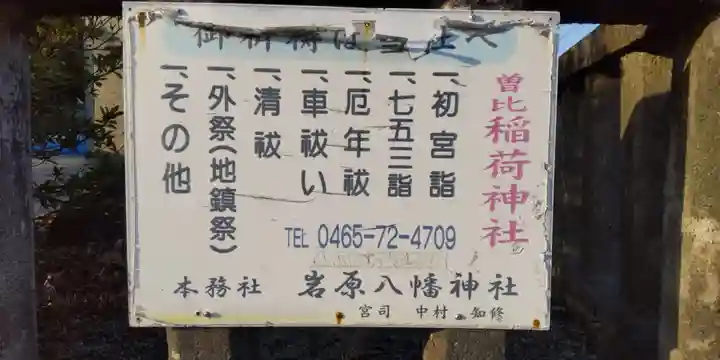 御祈祷は当社へ
曽比稲荷神社
一、初宮詣
一、七五三詣
一、厄年祓
一、車祓い
一、清祓
一、外祭(地鎮祭)
一、その他
TEL 0465-72-4709
本務社 岩原八幡神社
宮司 中村 知修